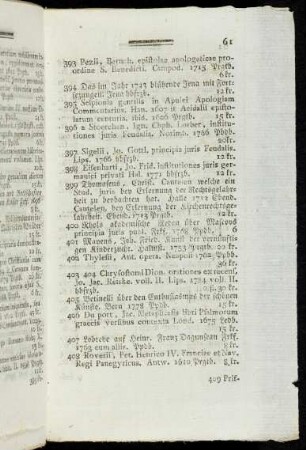 61
393 Pezii, Bernh. epistolae apologeticae pro
ordine S. Benedicti. Campod. 1715. Prgtb.
6 kr.
394 Das im Jahr 1747 blühende Jena mit Fort-
setzungen. Jena hbfrzb. 12 kr.
395 Scipionis gentilis in Apulei Apologiam
Commentarius. Han. 1607 it Acidalii episto-
larum centuria. ibid. 1606 Prgtb. 15 kr.
396 a Stoerchen, Ign. Chph. Lorber, Institu-
tiones juris Feudalis. Norimb. 1766 Ppb.
20 kr.
397 Sigelii, Jo. Gottl. principia juris Feudalis.
Lips. 1766 hbfrzb. 12 kr.
398 Eisenharti, Jo. Frid. institutiones juris ger-
manici privati Hal. 1771 hbfrzb. 15 kr.
399 Thomasens, Christ. Cautelen welche ein
Stud. juris bey Erlernung der Rechtsgelahr-
heit zu beobachten hat. Halle 1711 Ebend.
Cautelen, bey Erlernung der Kirchenrechtsge-
lahrheit. Ebend. 1713 Prgtb. 12 kr.
400 Ebels akademische Reden über Mascovs
principia juris publ. Frkf. 1768 Ppb. 6 kr.
401
Kinderzucht. 1753 Prgtb. 20 kr.
402 Thylesii, Ant. opera. Neapoli 1762 Ppb.
20 kr.
403 404 Chrysostomi Dion. orationes ex recens.
Jo. Jac. Reiske. voll. II. Lips. 1784 voll II.
hbfrzb. 1 fl. 12 kr.
405 Betinelli über den Enthusiasmus der schönen
Künste. Bern 1778 Ppb. 15 kr.
406 Du port, Jac. Metaphrasis libri Psalmorum
graecis versibus contenta Lond. 1675 Ldb.
15 kr.
407 Lobrede auf Heinr. Franz Daguesseau Frkf.
1763 cum aliis. Ppb. 8 kr.
408 Roverii, Pet. Henrico IV. Franciae et Nav.
Regi Panegyricus. Antw. 1610 Prgtb. 8 kr.
409 Prif-